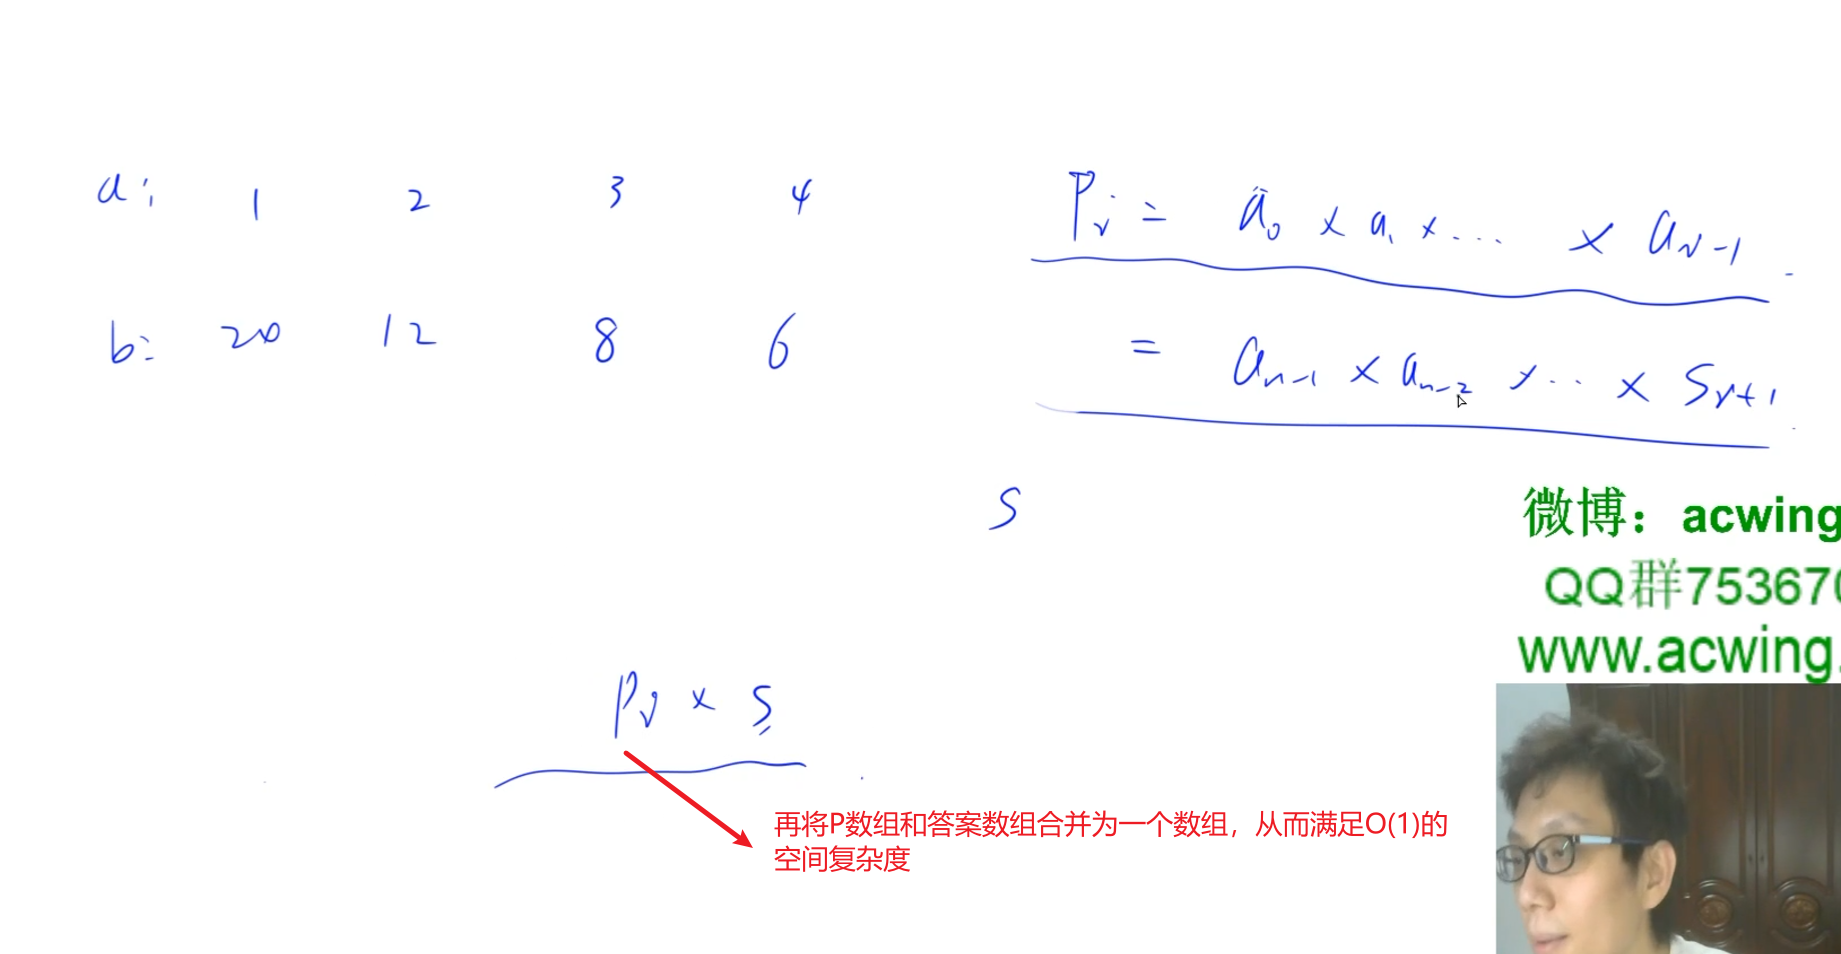 a: 1 2 3 4
b: 20 12 8 6
Pi = a0 × a1 × ... × ai-1
= an-1 × an-2 × ... × Si+1
S
微博：acwing
QQ群753670
www.acwing.
Pi × S
再将P数组和答案数组合并为一个数组，从而满足O(1)的
空间复杂度